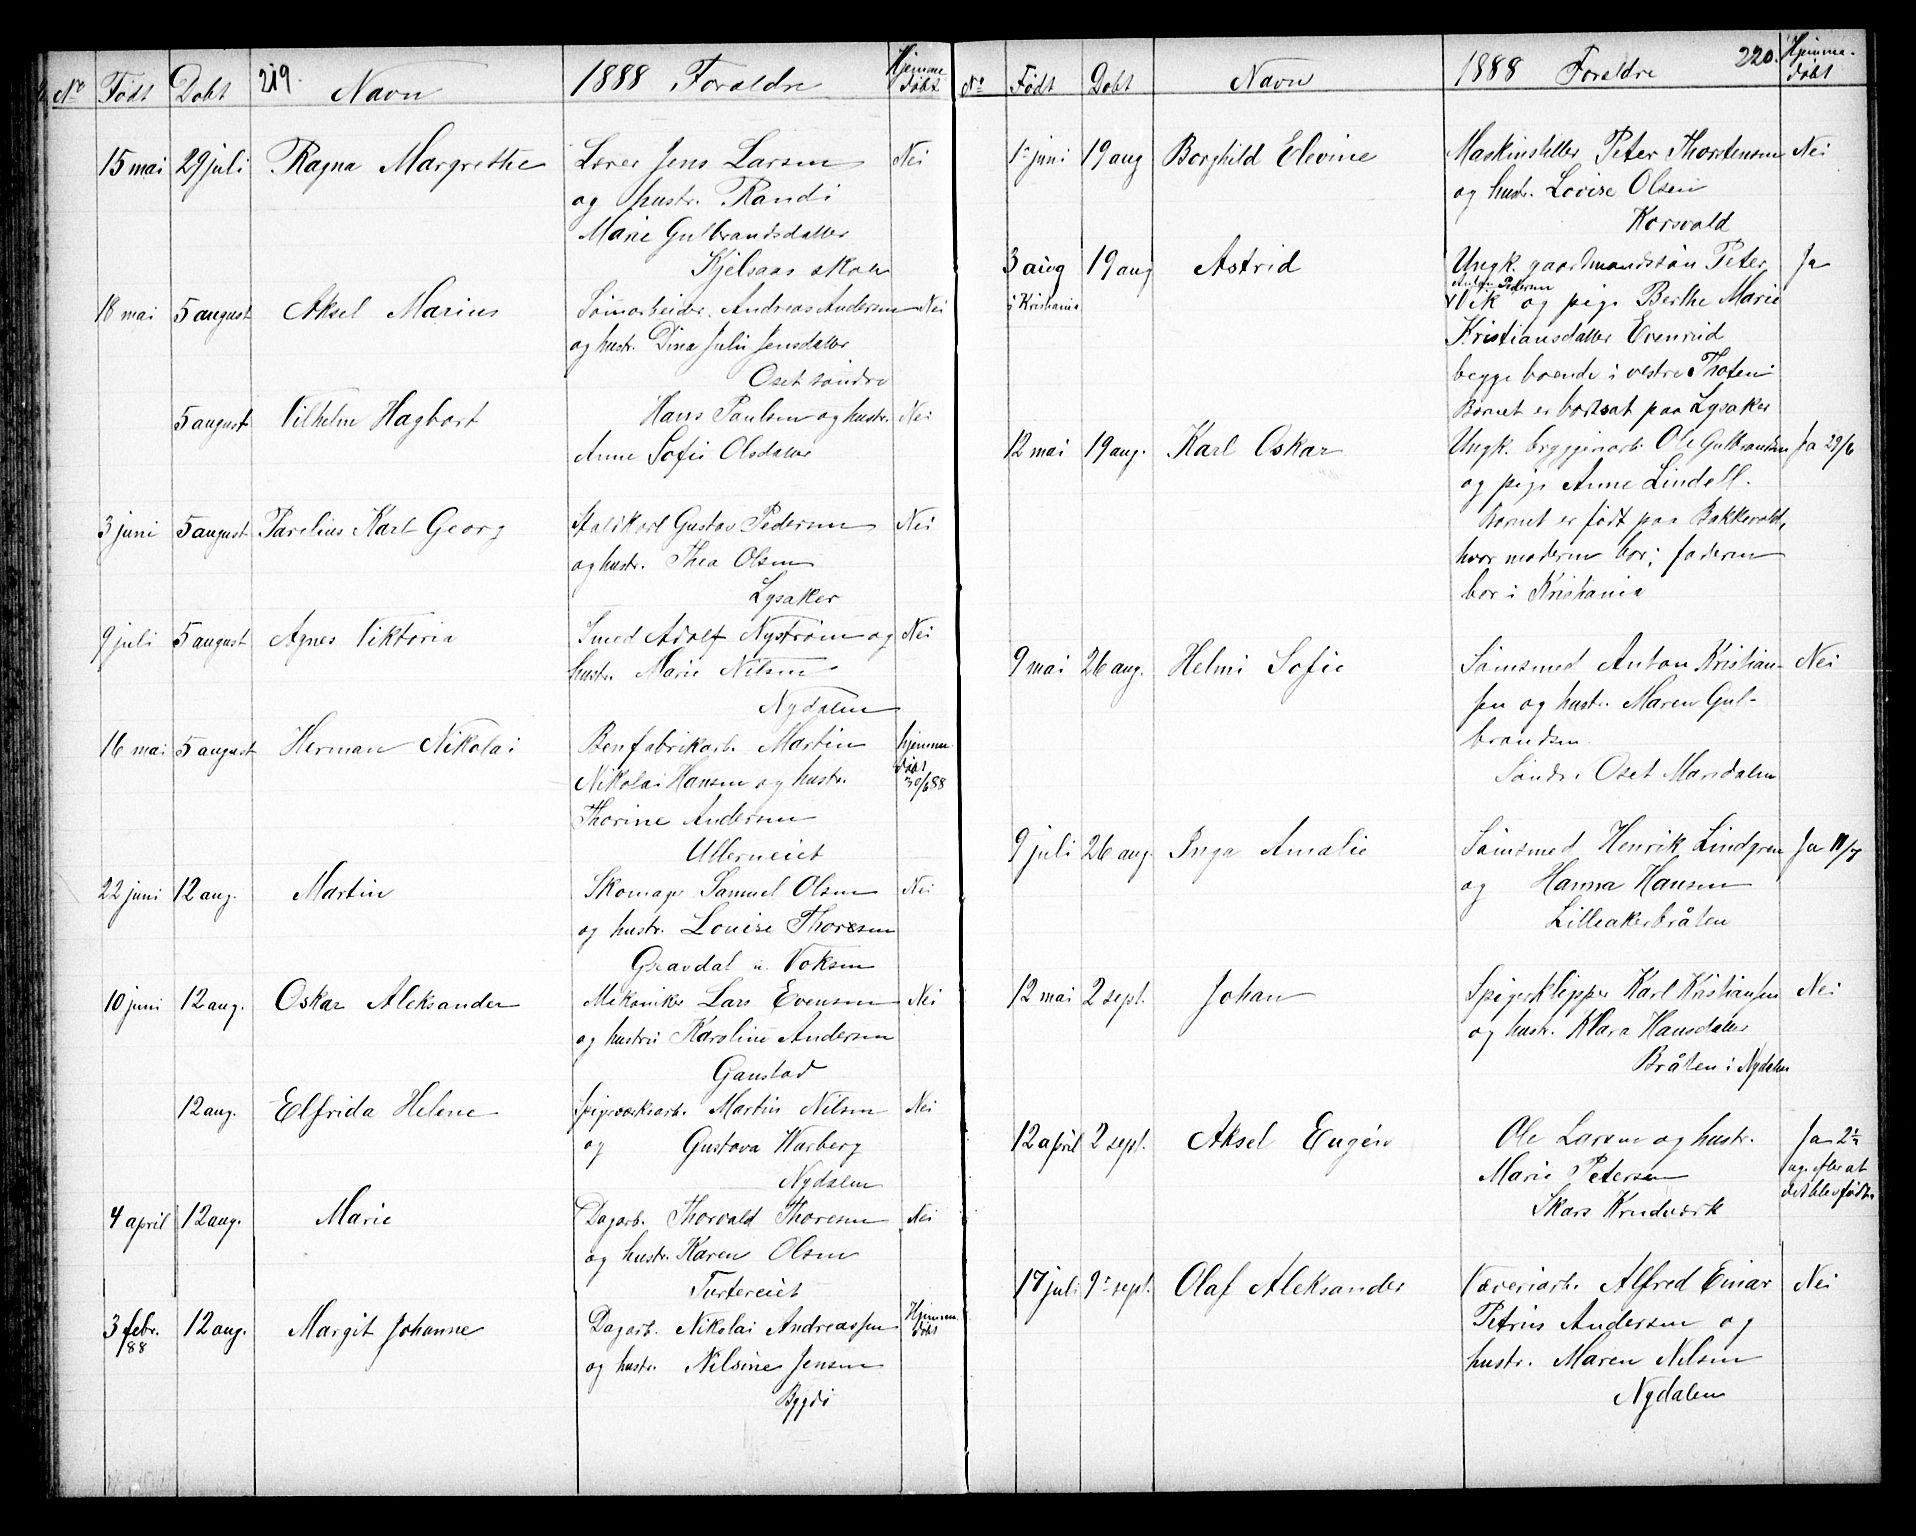 No Født Døbt 219. Navn 1888 Foraldre Hjemme døbt
15 mai 29 juli Ragna Margrethe Lærer Jens Larsen Nei
og hustr. Randi
Marie Gulbrandsdatter
Kjelsaas skole
18 mai 5 august Aksel Marius Sømarbeider Andreas Andersen Nei
og hustr. Dina Julie Jensdatter
Oset søndre
5 august Vilhelm Hagbart Hans Paulsen og hustr. Nei
Anne Sofie Olsdatter
3 juni 5 august Parelius Karl Georg Staldkarl Gustav Pedersen Nei
og hustr. Thea Olsen
Lysaker
9 juli 5 august Agnes Viktoria Smed Adolf Nystrøm og Nei
hustr. Marie Nilsen
Nydalen
16 mai 5 august Herman Nikolai Benfabrikarb. Martin hjemme
Nikolai Hansen og hustr. døbt 30/6 88
Thorine Andersen
Ullerneiet
22 juni 12 aug. Martin Skomager Samuel Olsen Nei
og hustr. Louise Thoresen
Graavdal u. Voksen
10 juni 12 aug. Oskar Aleksander Mekaniker Lars Evensen Nei
og hustru Karoline Andersen
Gaustad
12 aug. Elfrida Helene Spigerværksarb. Martin Nilsen Nei
og Gustava Warberg
Nydalen
4 april 12 aug. Marie Dagarb. Thorvald Thoresen Nei
og hustr. Karen Olsen
Turtereiet
3 febr. 12 aug. Margit Johanne Dagarb. Nikolai Andreassen Hjemme
/88 og hustr. Nilsine Jensen døbt
Bygdø
No Født Døbt Navn 1888 Foraldre 220. Hjemme-døbt
1 juni 19 aug Borghild Elevine Maskinstiller Peter Thorstensen Nei
og hustr. Lovise Olsen
Korsvold
3 aug 19 aug Astrid Ungk. gaardmandssøn Peter Ja
i Kristiania Anton Pedersen
Vik og pige Berthe Marie
Kristiansdatter Evenrud
begge boende i vestre Thoten
Barnet er bortsat paa Lysaker
12 mai 19 aug. Karl Oskar Ungk. bryggeriarb. Ole Gulbrandsen Ja 29/6
og pige Anne Lindell.
Barnet er født paa Bakkevold,
hvor moderen bor; faderen
bor i Kristiania
9 mai 26 aug. Helmi Sofie Sømsmed Anton Kristian- Nei
sen og hustr. Maren Gul-
brandsen
Søndr. Oset Maridalen
9 juli 26 aug. Inga Amalie Sømsmed Henrik Lindgren Ja 11/7
og Hanna Hansen
Lilleakerbråten
12 mai 2 sept. Johan Spigerklipper Karl Kristiansen Nei
og hustr. Klara Hansdatter
Bråten i Nydalen
12 april 2 sept. Aksel Eugén Ole Larsen og hustr. Ja 2½
Marie Petersen ug. efter at
Skars Krudværk det blev født
17 juli 9 sept. Olaf Aleksander Væveriarb. Alfred Einar Nei
Petrius Andersen og
hustr. Maren Nilsen
Nydalen